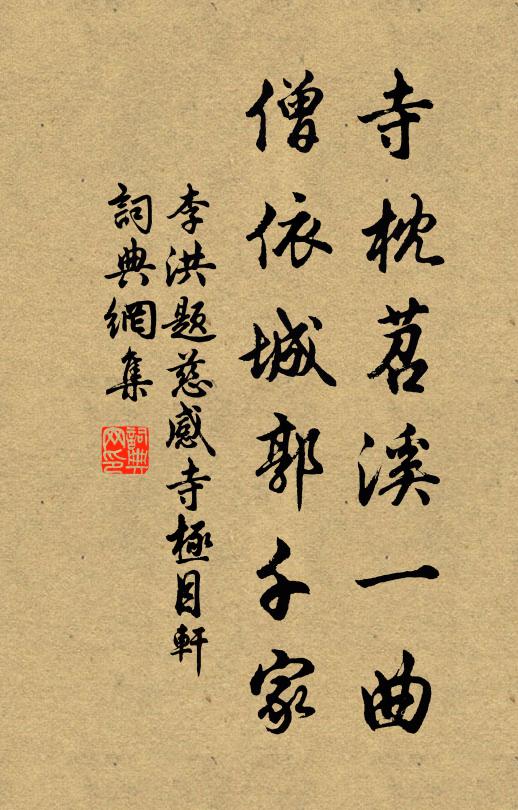 寺枕苕溪一曲
僧依城郭千家
李洪题慈感寺極目軒
詞典網集
詞典網印